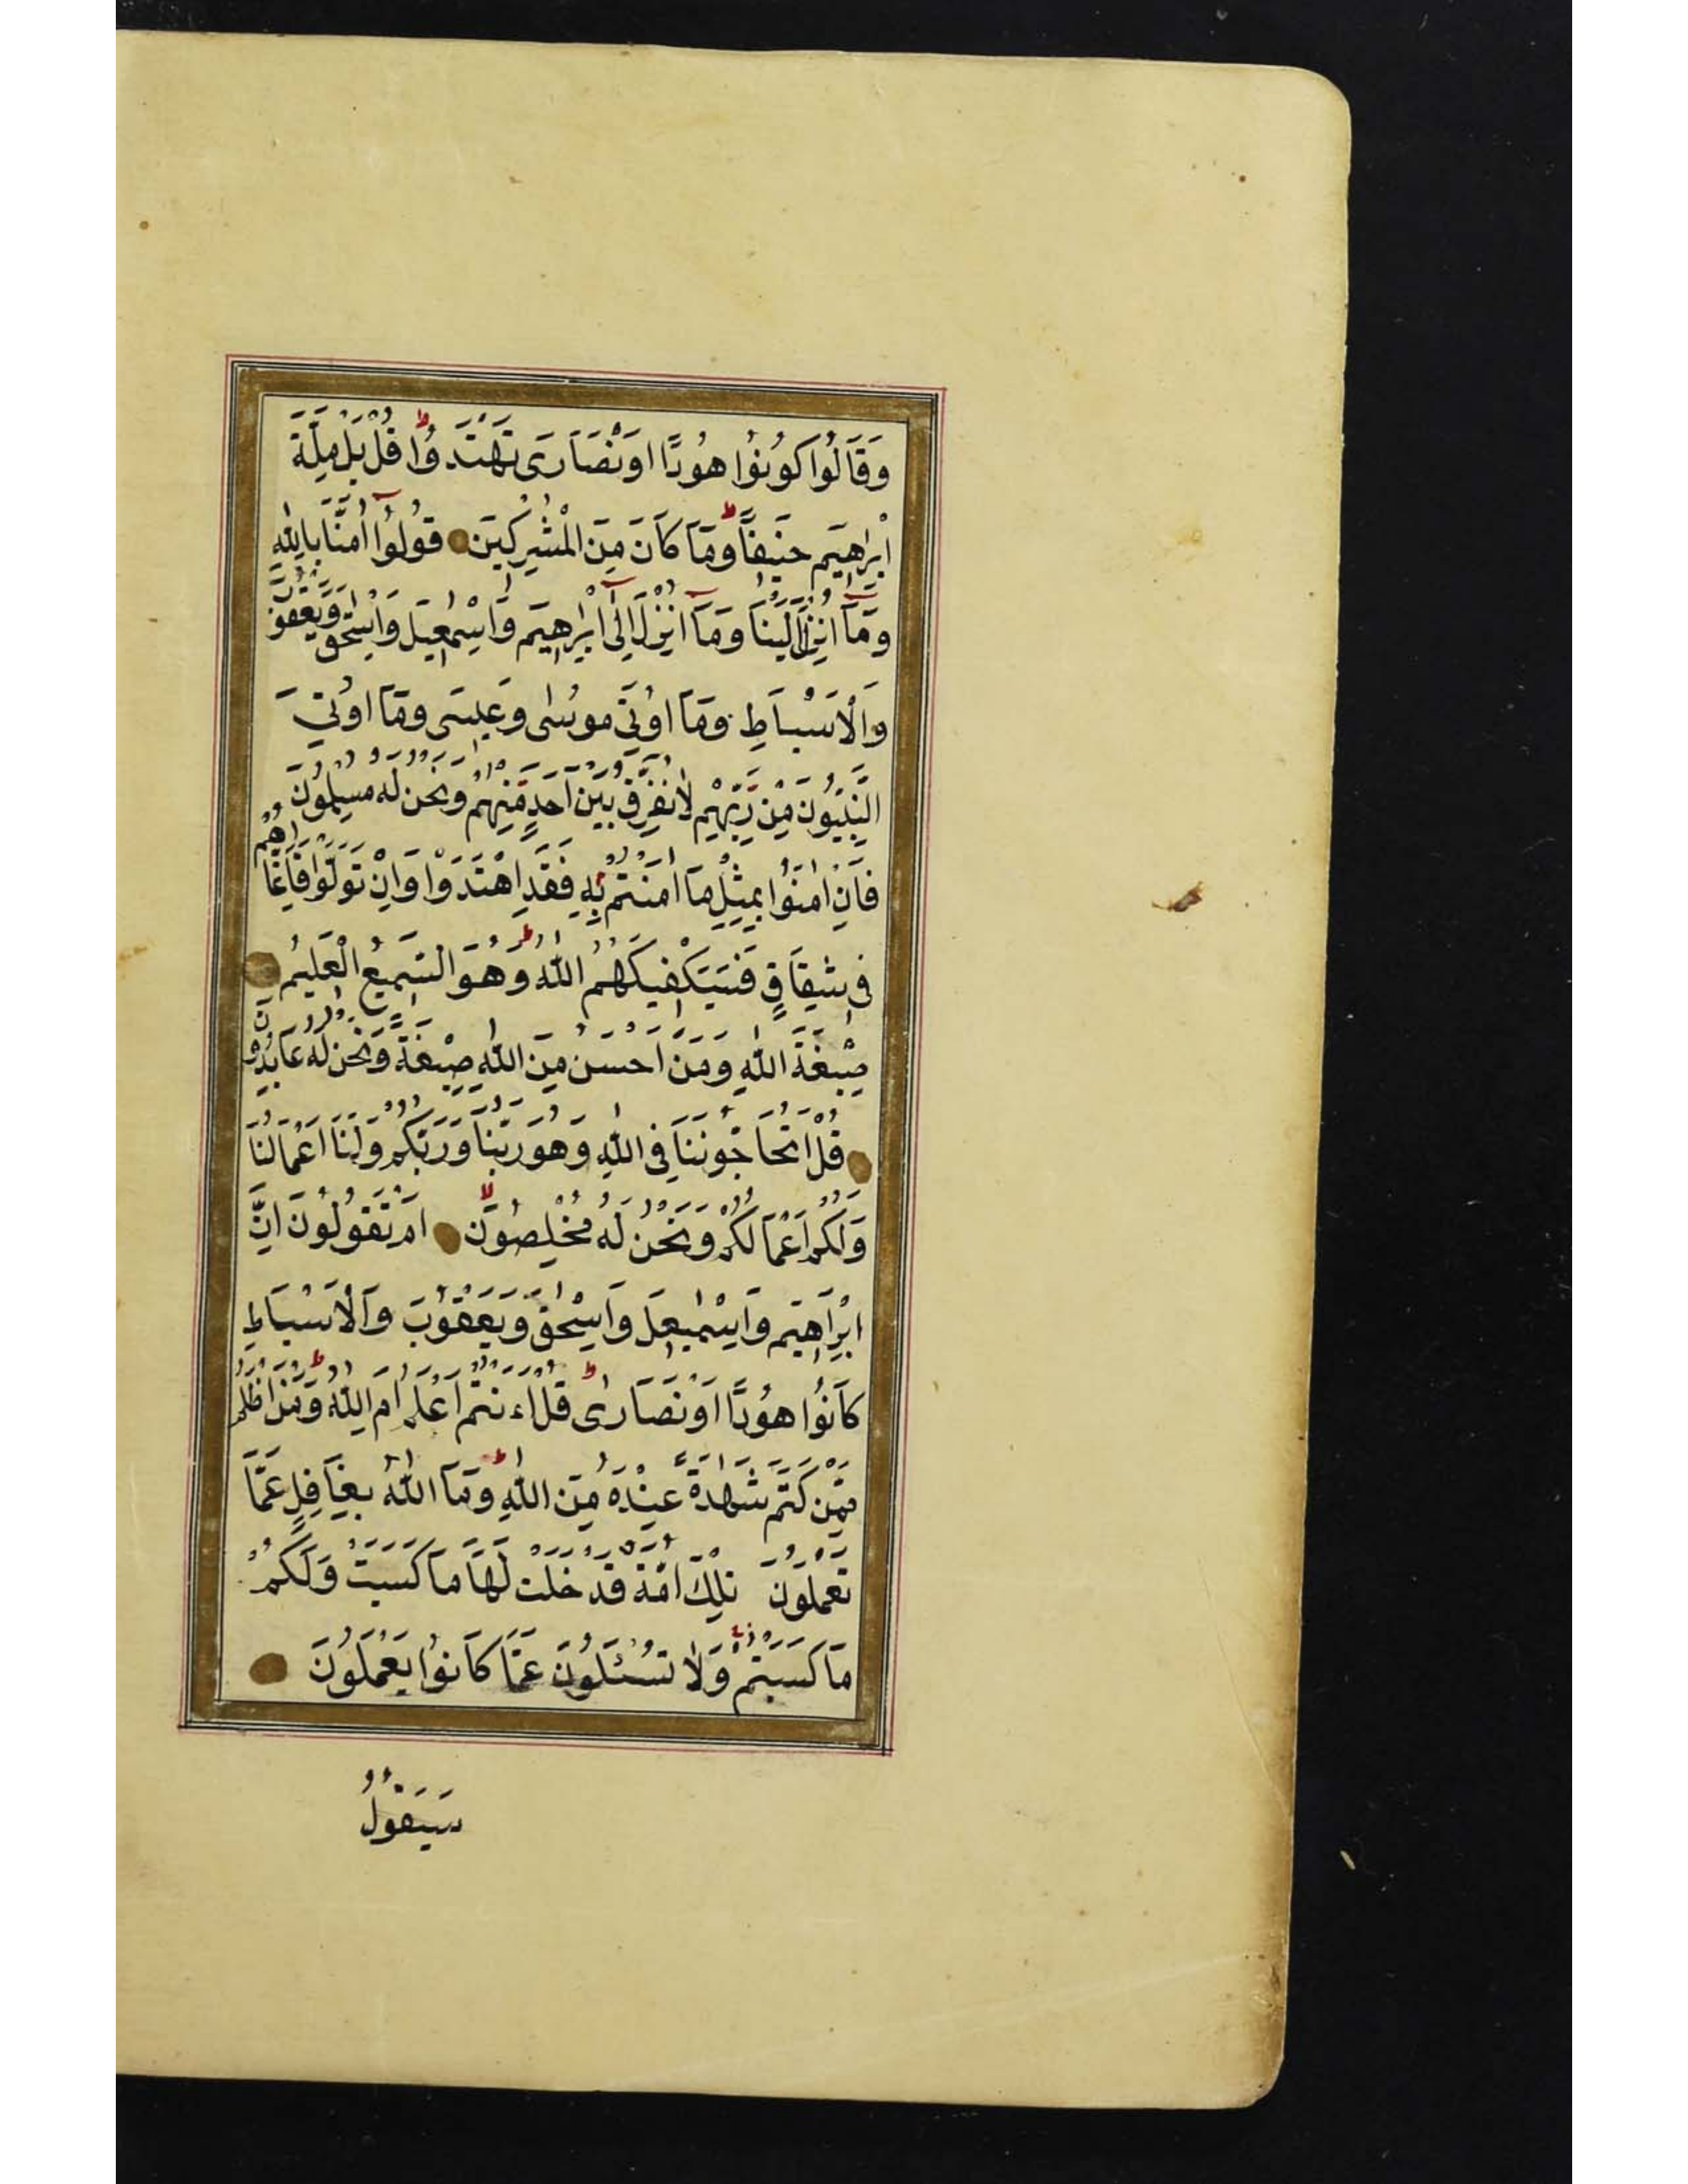 وَقَالُوا كُونُوا هُودًا اَوْ نَصَارَى تَهْتَدُوا ط قُلْ بَلْ مِلَّةَ
اِبْرٰهِيمَ حَنِيفًا ط وَمَا كَانَ مِنَ الْمُشْرِكِينَ قُولُوٓا اٰمَنَّا بِاللّٰهِ
وَمَآ اُنْزِلَ اِلَيْنَا وَمَآ اُنْزِلَ اِلٰٓى اِبْرٰهِيمَ وَاِسْمٰعِيلَ وَاِسْحٰقَ وَيَعْقُوبَ
وَالْاَسْبَاطِ وَمَا اُوتِيَ مُوسٰى وَعِيسَى وَمَا اُوتِيَ
النَّبِيُّونَ مِنْ رَبِّهِمْ لَا نُفَرِّقُ بَيْنَ اَحَدٍ مِنْهُمْ وَنَحْنُ لَهُ مُسْلِمُونَ
فَاِنْ اٰمَنُوا بِمِثْلِ مَا اٰمَنْتُمْ بِهِ فَقَدِ اهْتَدَوْا وَاِنْ تَوَلَّوْا فَاِنَّمَا هُمْ
فِى شِقَاقٍ فَسَيَكْفِيكَهُمُ اللّٰهُ ط وَهُوَ السَّمِيعُ الْعَلِيمُ
صِبْغَةَ اللّٰهِ وَمَنْ اَحْسَنُ مِنَ اللّٰهِ صِبْغَةً وَنَحْنُ لَهُ عَابِدُونَ
قُلْ اَتُحَاجُّونَنَا فِى اللّٰهِ وَهُوَ رَبُّنَا وَرَبُّكُمْ وَلَنَا اَعْمَالُنَا
وَلَكُمْ اَعْمَالُكُمْ وَنَحْنُ لَهُ مُخْلِصُونَ لا اَمْ تَقُولُونَ اِنَّ
اِبْرَاهِيمَ وَاِسْمٰعِيلَ وَاِسْحٰقَ وَيَعْقُوبَ وَالْاَسْبَاطِ
كَانُوا هُودًا اَوْ نَصَارٰى ط قُلْ ءَاَنْتُمْ اَعْلَمُ اَمِ اللّٰهُ ط وَمَنْ اَظْلَمُ
مِمَّنْ كَتَمَ شَهَادَةً عِنْدَهُ مِنَ اللّٰهِ ط وَمَا اللّٰهُ بِغَافِلٍ عَمَّا
تَعْمَلُونَ تِلْكَ اُمَّةٌ قَدْ خَلَتْ لَهَا مَا كَسَبَتْ وَلَكُمْ
مَا كَسَبْتُمْ وَلَا تُسْئَلُونَ عَمَّا كَانُوا يَعْمَلُونَ
سَيَقُولُ